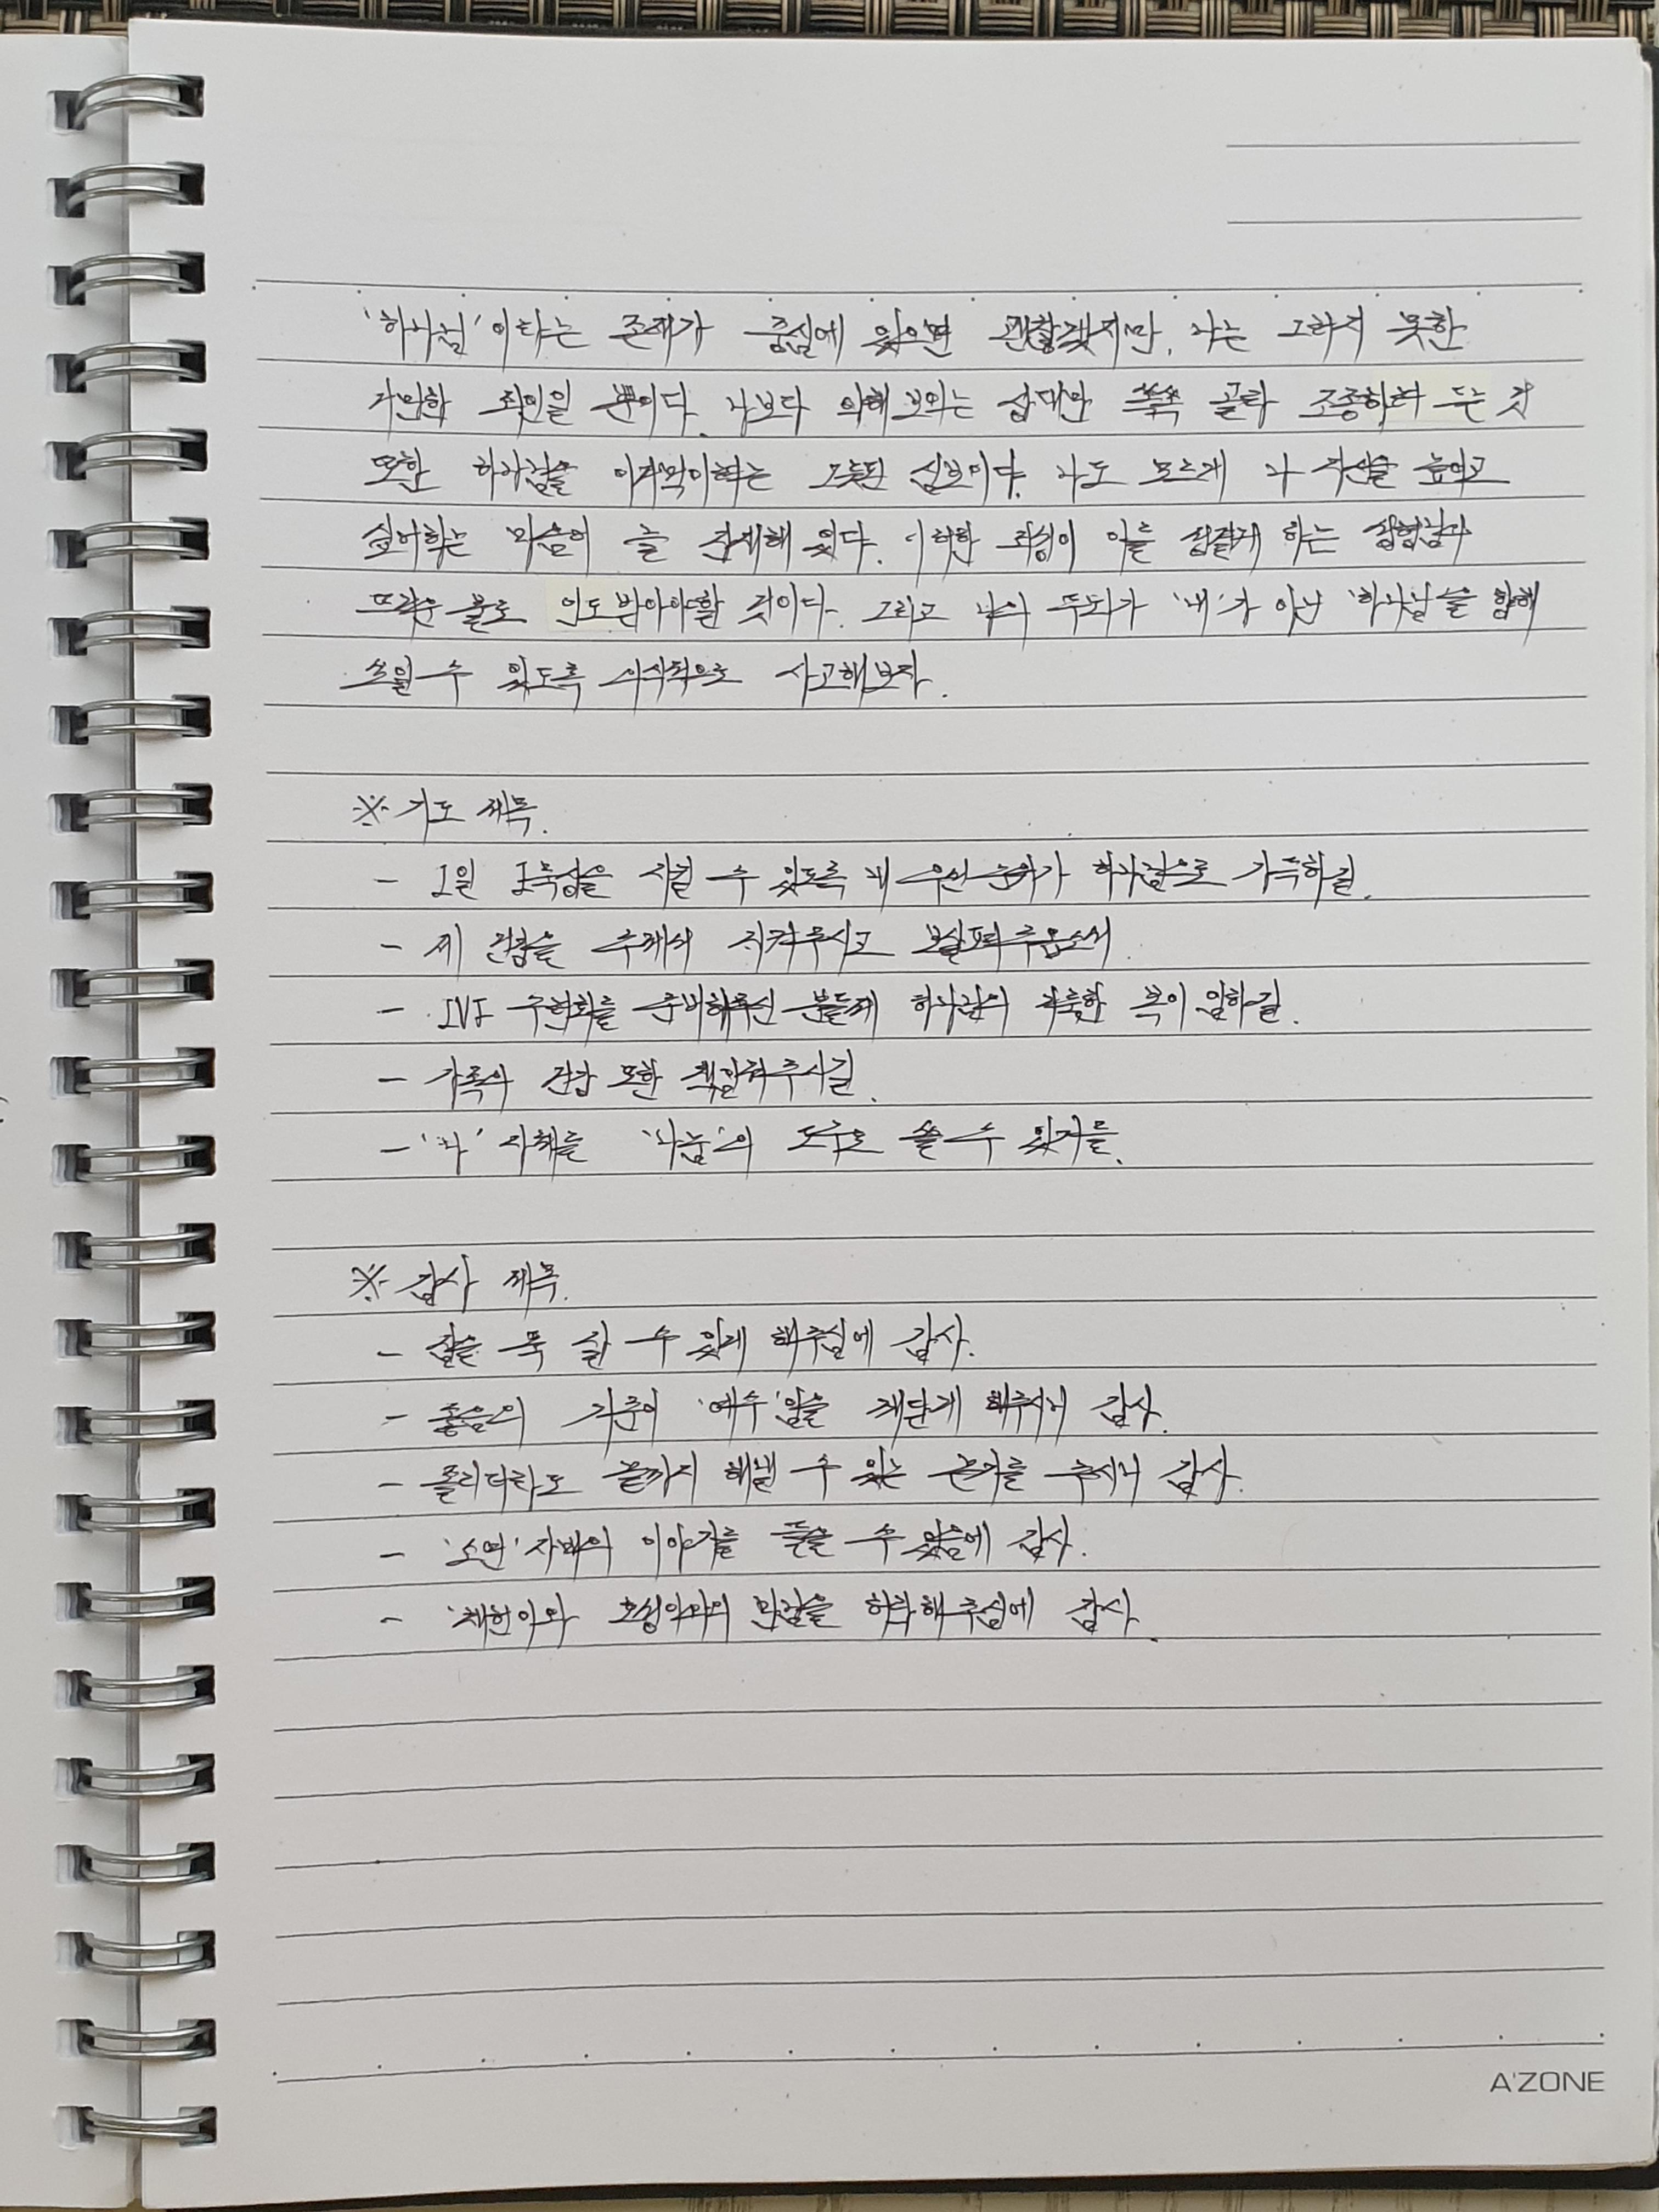 '하나님'이라는 존재가 중심에 있으면 괜찮겠지만, 나는 그러지 못한
거만한 죄인일 뿐이다. 나보다 약해보이는 상대만 쏙쏙 골라 조종하려 드는 것
또한 하나님을 이겨먹으려하는 그릇된 심보이다. 나도 모르게 나 자신을 높이고
싶어하는 마음이 늘 잠재해 있다. 이러한 죄성이 이를 잠잠케 하는
뜨거운 불로 인도받아야할 것이다. 그리고 나의 두뇌가 '내'가 아닌 '하나님'을 향해
쓰일 수 있도록 의식적으로 사고해보자.
※ 기도 제목.
- 1일 1묵상을 지킬 수 있도록 내 우선순위가 하나님으로 가득하길.
- 제 건강을 주께서 지켜주시고 보살펴주옵소서.
- IVF 수련회를 준비해주신 분들께 하나님의 거룩한 복이 임하길.
- 가족의 건강 또한 책임져주시길.
- '나' 자체를 '나눔'의 도구로 쓸 수 있기를.
※ 감사 제목.
- 잠을 푹 잘 수 있게 해주심에 감사.
- 좋음의 기준이 '예수'임을 깨닫게 해주시니 감사.
- 졸리더라도 끝까지 해낼 수 있는 끈기를 주시니 감사.
- '소연' 자매의 이야기를 들을 수 있음에 감사.
- 채현이와 만남을 허락해주심에 감사.
A'ZONE